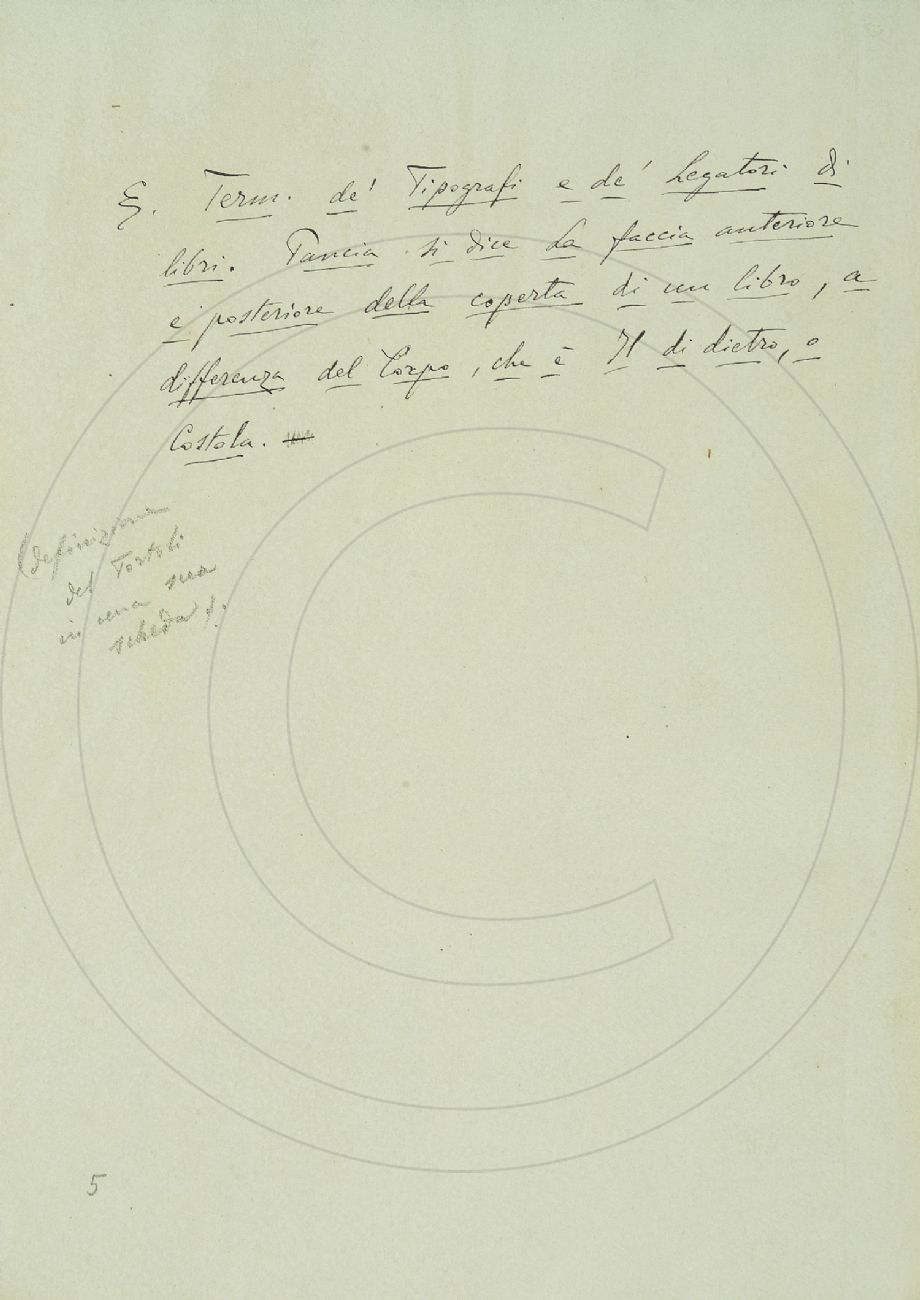 §. Term. de' Tipografi e de' Legatori di
libri. Pancia si dice La faccia anteriore
e posteriore della coperta di un libro, a
differenza del Corpo, che è Il di dietro, o
Costola.
(definizione
del Tortoli
in una sua
scheda).
5